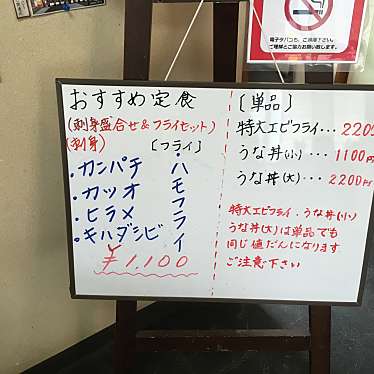 電子タバコも、ご遠慮下さい。
ご理解とご協力お願い致します。
おすすめ定食
(刺身盛合せ&フライセット)
(刺身)
・カンパチ
・カツオ
・ヒラメ
・キハダシビ
〔フライ〕
・ハモフライ
¥1,100
〔単品〕
特大エビフライ・・・220
うな丼(小)・・・1100円
うな丼(大)・・・2200円
特大エビフライ、うな丼(小)
うな丼(大)は単品でも
同じ値だんになります
ご注意下さい